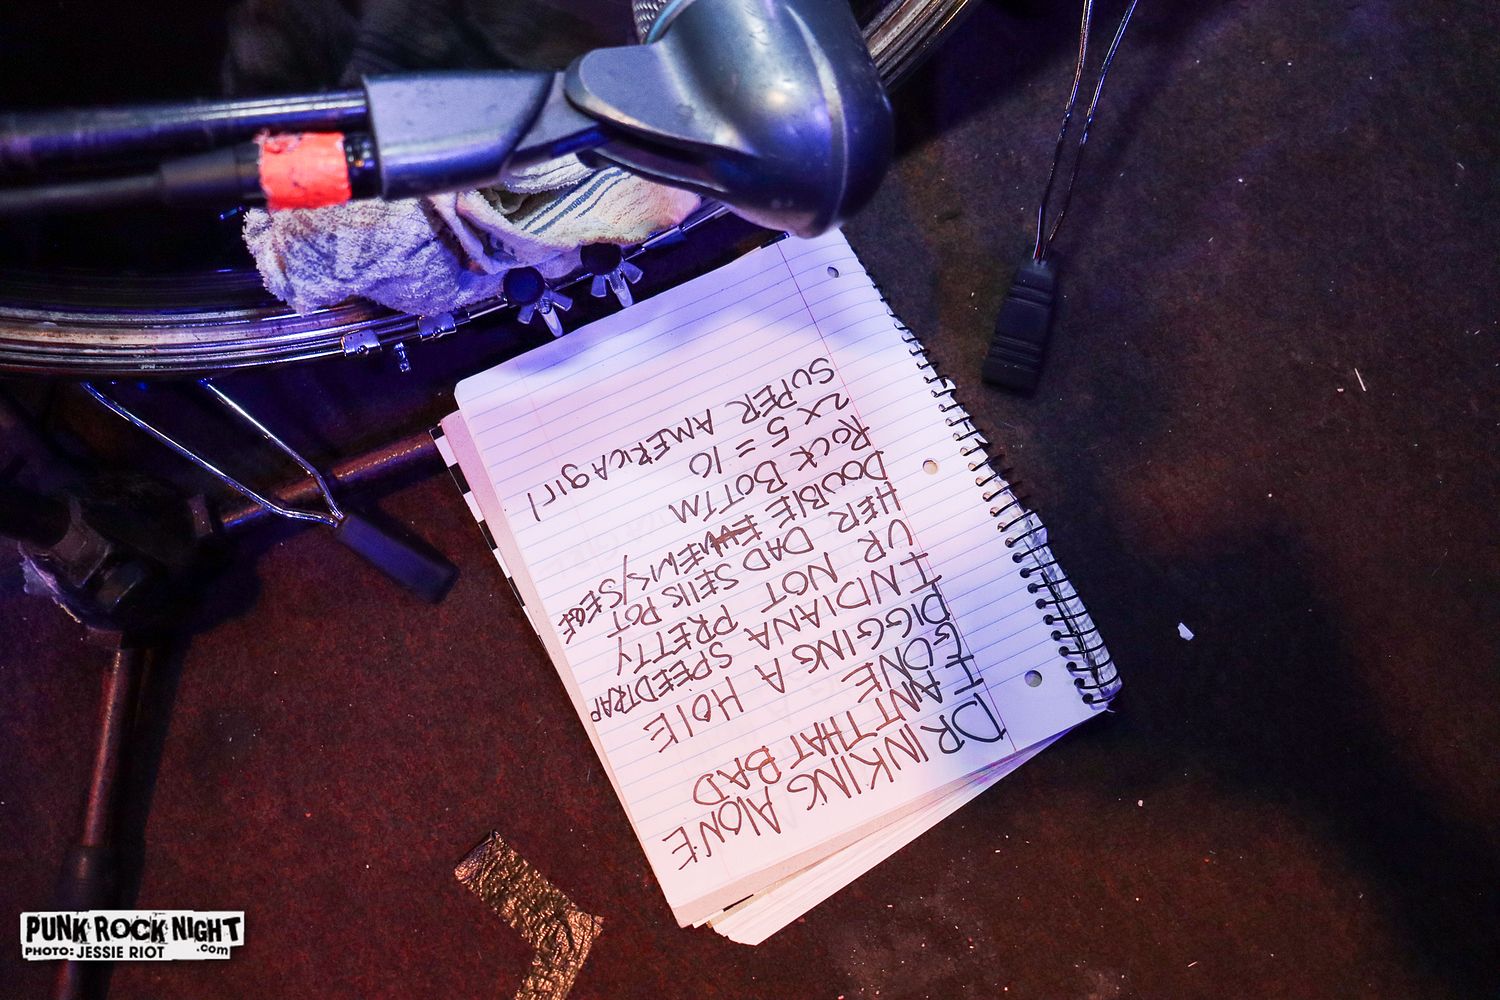 DRINKING ALONE
I ANT THAT BAD
GONE
DIGGING A HOLE
INDIANA SPEEDTRAP
UR NOT PRETTY
HER DAD SEllS POT
DOUBLE
ROCK BOTTM
2X 5 = 10
SUPER AMERICA girl
PUNK ROCK NIGHT
.com
PHOTO: JESSIE RIOT